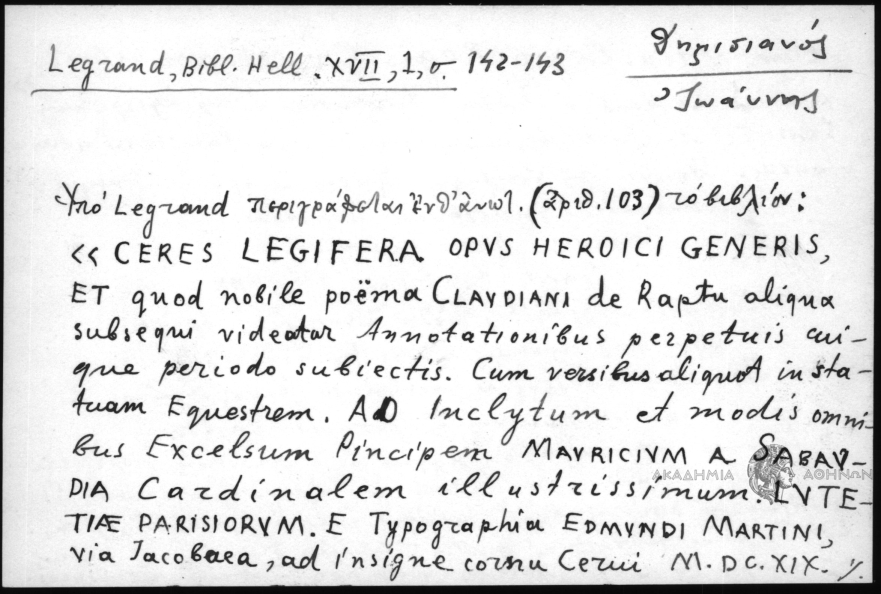 Legrand, Bibl. Hell. XVII, 1, σ. 142-143
Θηρισιανός
Ἰωάννης
Ὑπό Legrand περιγράφεται ἐνθ' ἀνωτ. (ἀριθ. 103) τό βιβλίον:
<< CERES LEGIFERA OPVS HEROICI GENERIS,
ET quod nobile poëma CLAVDIANI de Raptu aliqua
subsequi videatur Annotationibus perpetuis cui-
que periodo subiectis. Cum versibus aliquot in sta-
tuam Equestrem. AD Inclytum et modis omni-
bus Excelsum Pincipem MAVRICIVM A SABAV-
DIA Cardinalem illustrissimum. LVTE-
TIÆ PARISIORVM. E Typographia EDMVNDI MARTINI,
via Iacobaea, ad insigne cornu Cerui M.DC.XIX. ./.
ΑΚΑΔΗΜΙΑ ΑΘΗΝΩΝ